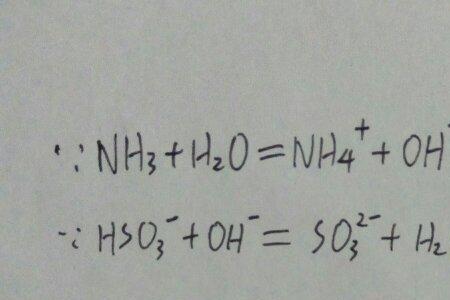 ∵ NH₃ + H₂O = NH₄⁺ + OH⁻
∵ HSO₃⁻ + OH⁻ = SO₃²⁻ + H₂